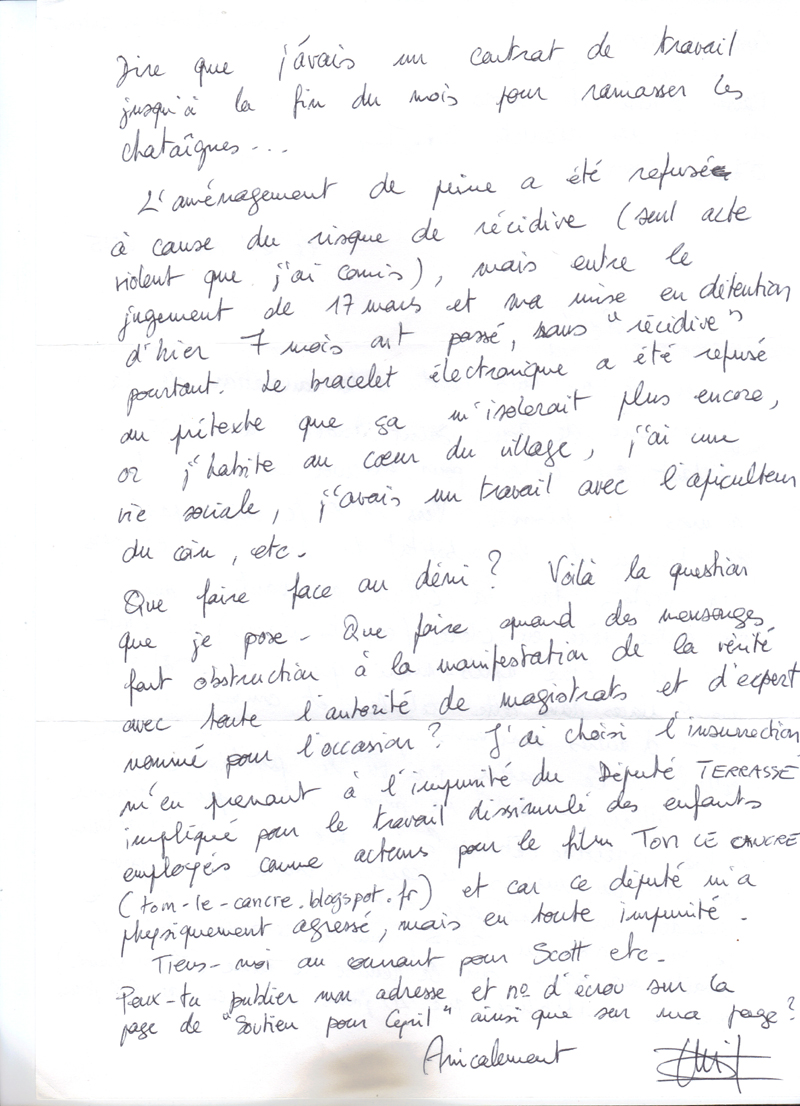 Dire que j'avais un contrat de travail
jusqu'à la fin du mois pour ramasser les
chataîgnes...
L'aménagement de peine a été refusé
à cause du risque de récidive (seul acte
violent que j'ai comis), mais entre le
jugement de 17 mars et ma mise en détention
d'hier 7 mois ont passé, sans "récidive"
pourtant. Le bracelet électronique a été refusé
au prétexte que ça m'isolerait plus encore,
or j'habite au cœur du village, j'ai une
vie sociale, j'avais un travail avec l'apiculteur
du coin, etc.
Que faire face au déni ? Voilà la question
que je pose. Que faire quand des mensonges
font obstruction à la manifestation de la vérité
avec toute l'autorité de magistrats et d'expert
nommé pour l'occasion ? J'ai choisi l'insurrection
m'en prenant à l'impunité du Député TERRASSE
impliqué pour le travail dissimulé des enfants
employés comme acteurs pour le film TOM LE CANCRE
(tom-le-cancre.blogspot.fr) et car ce député m'a
physiquement agressé, mais en toute impunité.
Tiens-moi au courant pour Scott etc.
Peux-tu publier mon adresse et n° d'écrou sur la
page de "Soutien pour Cyril" ainsi que sur ma page ?
Amicalement